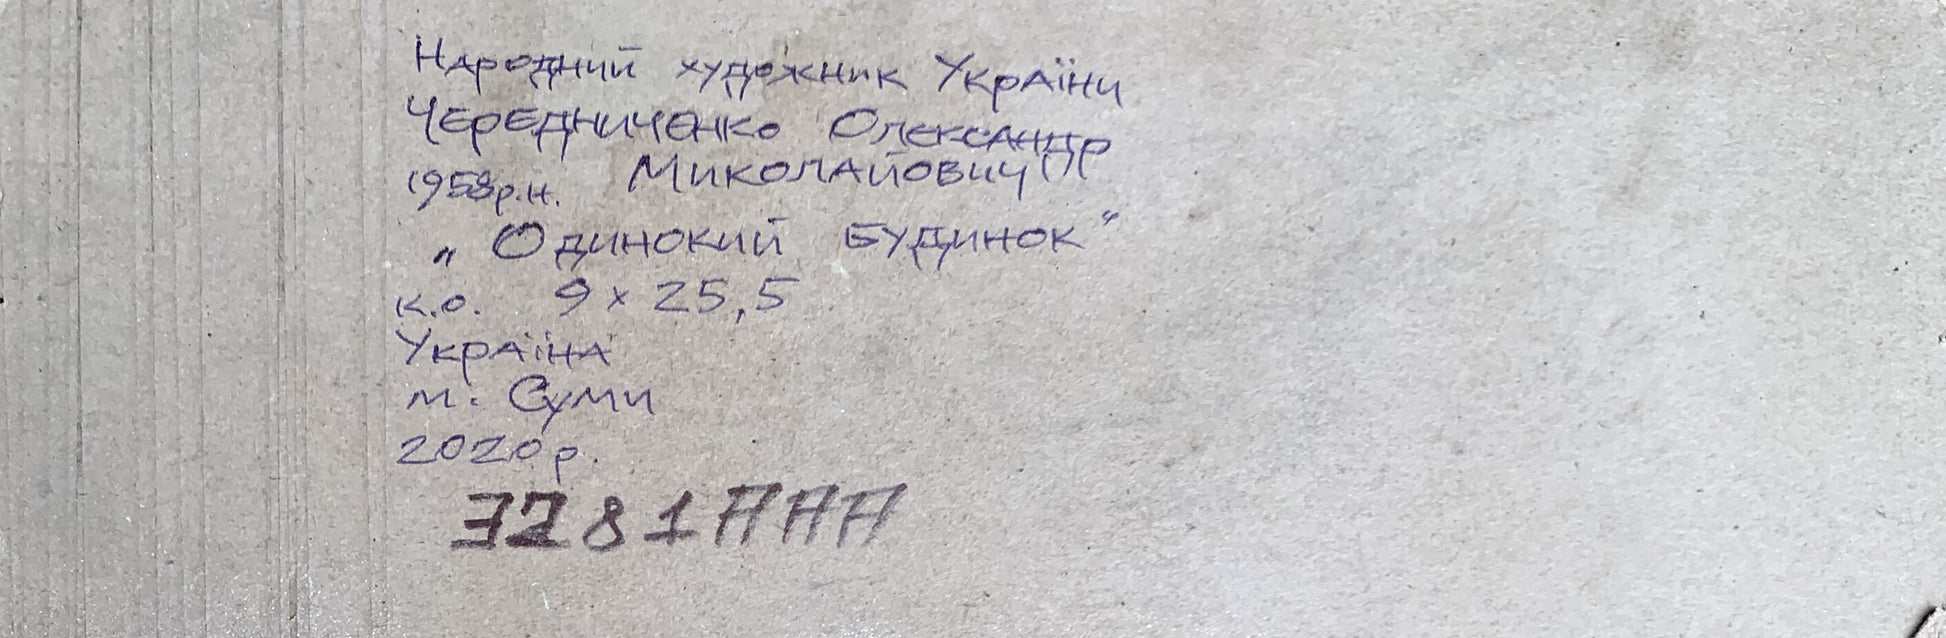 Народний художник України
Чередниченко Олександр
Миколайович
1958р.н.
„Одинокий будинок“
к.о. 9 х 25,5
Україна
м. Суми
2020р.
3281ААА